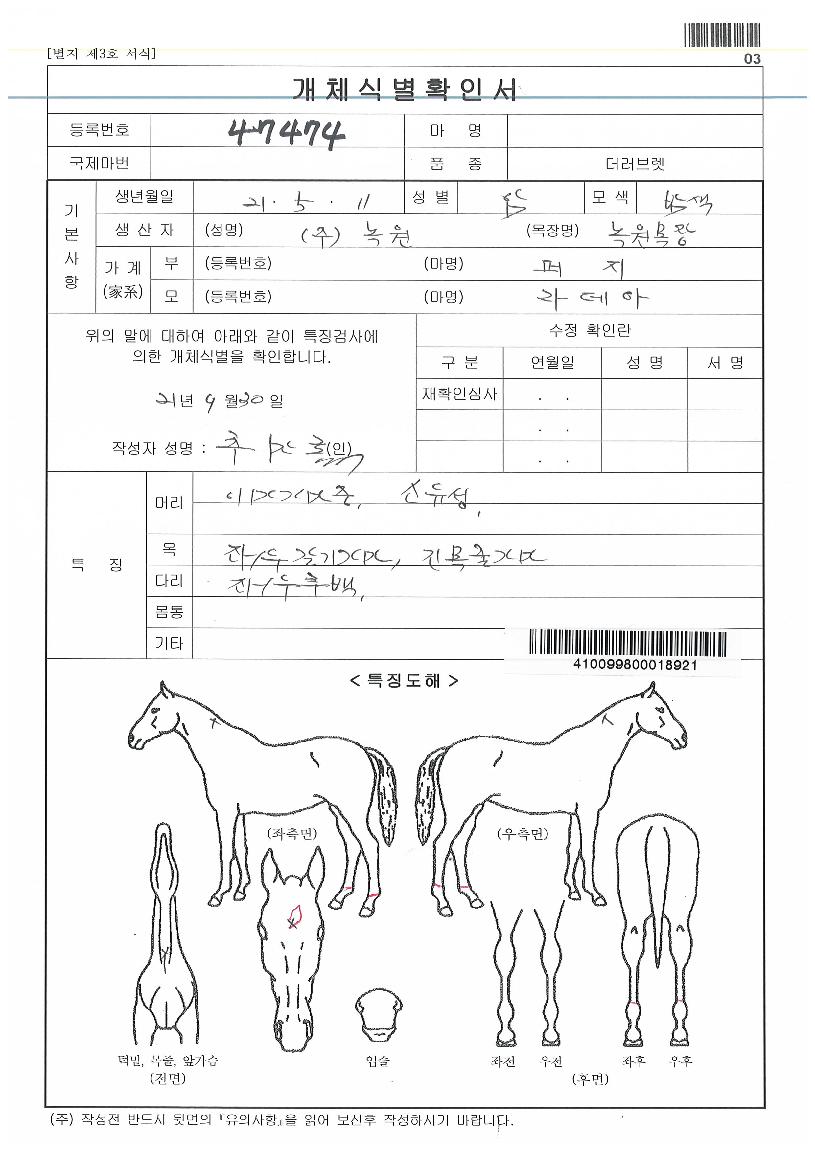 [별지 제3호 서식]
03
개체식별확인서
등록번호 47474 마 명
국제마번 품 종 더러브렛
기본사항
생년월일 21. 5. 11 성 별 암 모 색 밤색
생 산 자 (성명) (주) 녹원 (목장명) 녹원목장
가 계 (家系) 부 (등록번호) (마명) 퍼 지
모 (등록번호) (마명) 라 데 아
위의 말에 대하여 아래와 같이 특징검사에
의한 개체식별을 확인합니다.
21년 9 월 30 일
작성자 성명 : (인)
수정 확인란
구 분 연월일 성 명 서 명
재확인심사 . .
. .
. .
특 징
머리
목
다리 좌/우후백,
몸통
기타
410099800018921
< 특징도해 >
(좌측면) (우측면)
턱밑, 목줄, 앞가슴 입술 좌전 우전 좌후 우후
(전면) (후면)
(주) 작성전 반드시 뒷면의 『유의사항』을 읽어 보신후 작성하시기 바랍니다.